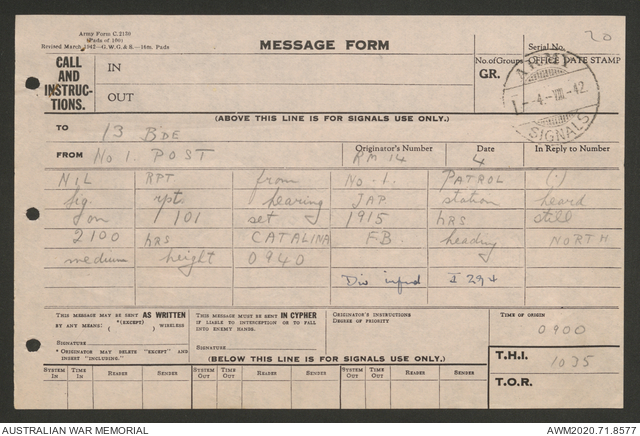 Army Form C.2130
(Pads of 100)
Revised March 1942—G.W.G. & S.—16m. Pads
MESSAGE FORM
20
Serial No.
CALL AND INSTRUCTIONS.
IN
OUT
No. of Groups
GR.
OFFICE DATE STAMP
ARMY
1-4-VIII-42
SIGNALS
(ABOVE THIS LINE IS FOR SIGNALS USE ONLY.)
TO 13 BDE
FROM No 1. POST
Originator's Number
RM 14
Date
4
In Reply to Number
NIL RPT from No. 1. PATROL (.)
Sig. rpt. hearing JAP station heard
on 101 set 1915 hrs till
2100 hrs CATALINA F.B. heading NORTH
medium height 0940
Div infmd I 29
THIS MESSAGE MAY BE SENT AS WRITTEN
BY ANY MEANS: *(EXCEPT) ( ) WIRELESS
SIGNATURE
* ORIGINATOR MAY DELETE "EXCEPT" AND INSERT "INCLUDING."
THIS MESSAGE MUST BE SENT IN CYPHER
IF LIABLE TO INTERCEPTION OR TO FALL INTO ENEMY HANDS.
SIGNATURE
ORIGINATOR'S INSTRUCTIONS
DEGREE OF PRIORITY
TIME OF ORIGIN
0900
(BELOW THIS LINE IS FOR SIGNALS USE ONLY.)
T.H.I. 1035
T.O.R.
SYSTEM IN TIME IN READER SENDER SYSTEM OUT TIME OUT READER SENDER SYSTEM OUT TIME OUT READER SENDER
AUSTRALIAN WAR MEMORIAL
AWM2020.71.8577